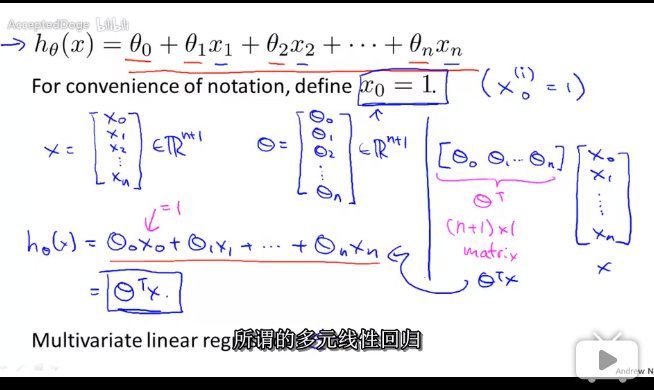 AcceptedDoge bilibili
→ h_θ(x) = θ₀ + θ₁x₁ + θ₂x₂ + ⋯ + θₙxₙ
For convenience of notation, define x₀ = 1. (x₀⁽ⁱ⁾ = 1)
x = [x₀ x₁ x₂ ⋮ xₙ] ∈ ℝⁿ⁺¹ θ = [θ₀ θ₁ θ₂ ⋮ θₙ] ∈ ℝⁿ⁺¹
[θ₀ θ₁ ⋯ θₙ] [x₀ x₁ ⋮ xₙ]
θᵀ
(n+1)×1
matrix
x
θᵀx
=1
h_θ(x) = θ₀x₀ + θ₁x₁ + ⋯ + θₙxₙ
= θᵀx.
Multivariate linear regr
所谓的多元线性回归
Andrew N